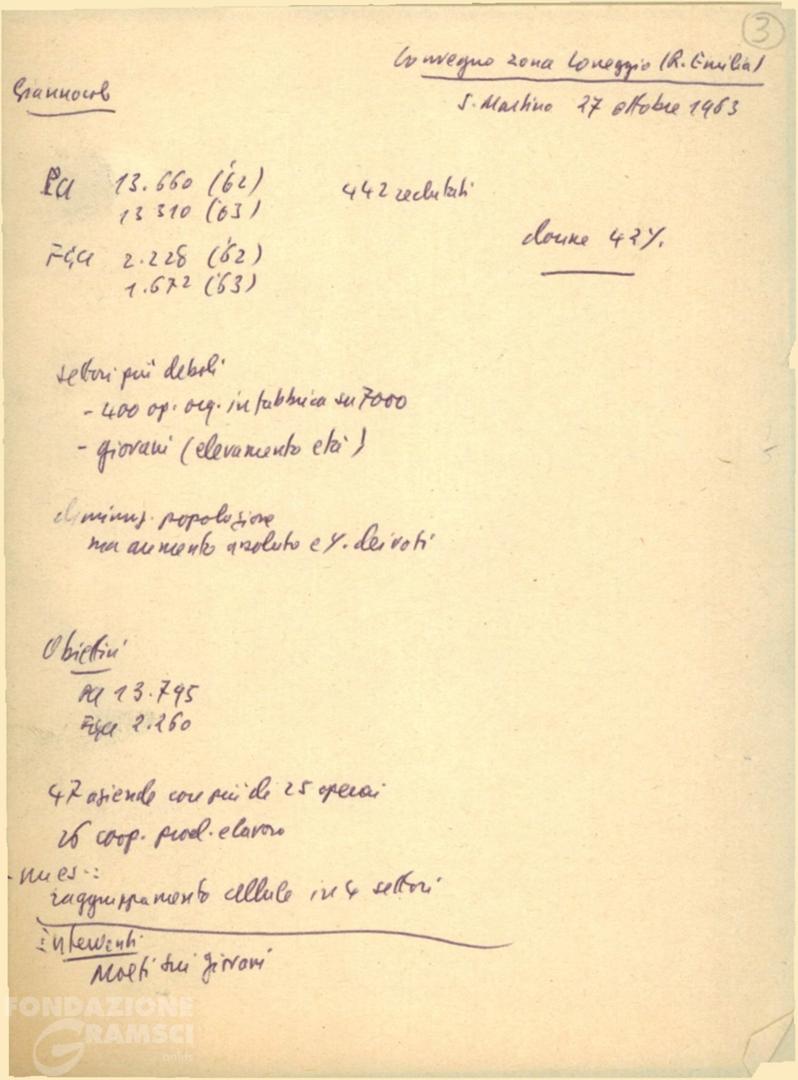 3
Convegno zona Correggio (R. Emilia)
Giannocolo
S. Martino 27 ottobre 1963
PCI 13.660 ('62) 442 reclutati
13 310 ('63)
donne 42%.
FGCI 2.228 ('62)
1.672 ('63)
settori più deboli
- 400 op. org. in fabbrica su 7000
- giovani (elevamento età)
diminuz. popolazione
ma aumento assoluto e %. dei voti
Obiettivi
PCI 13.795
FGCI 2.260
47 aziende con più di 25 operai
26 coop. prod. e lavoro
raggruppamento cellule in 4 settori
interventi
Molti sui giovani
FONDAZIONE
GRAMSCI
onlus